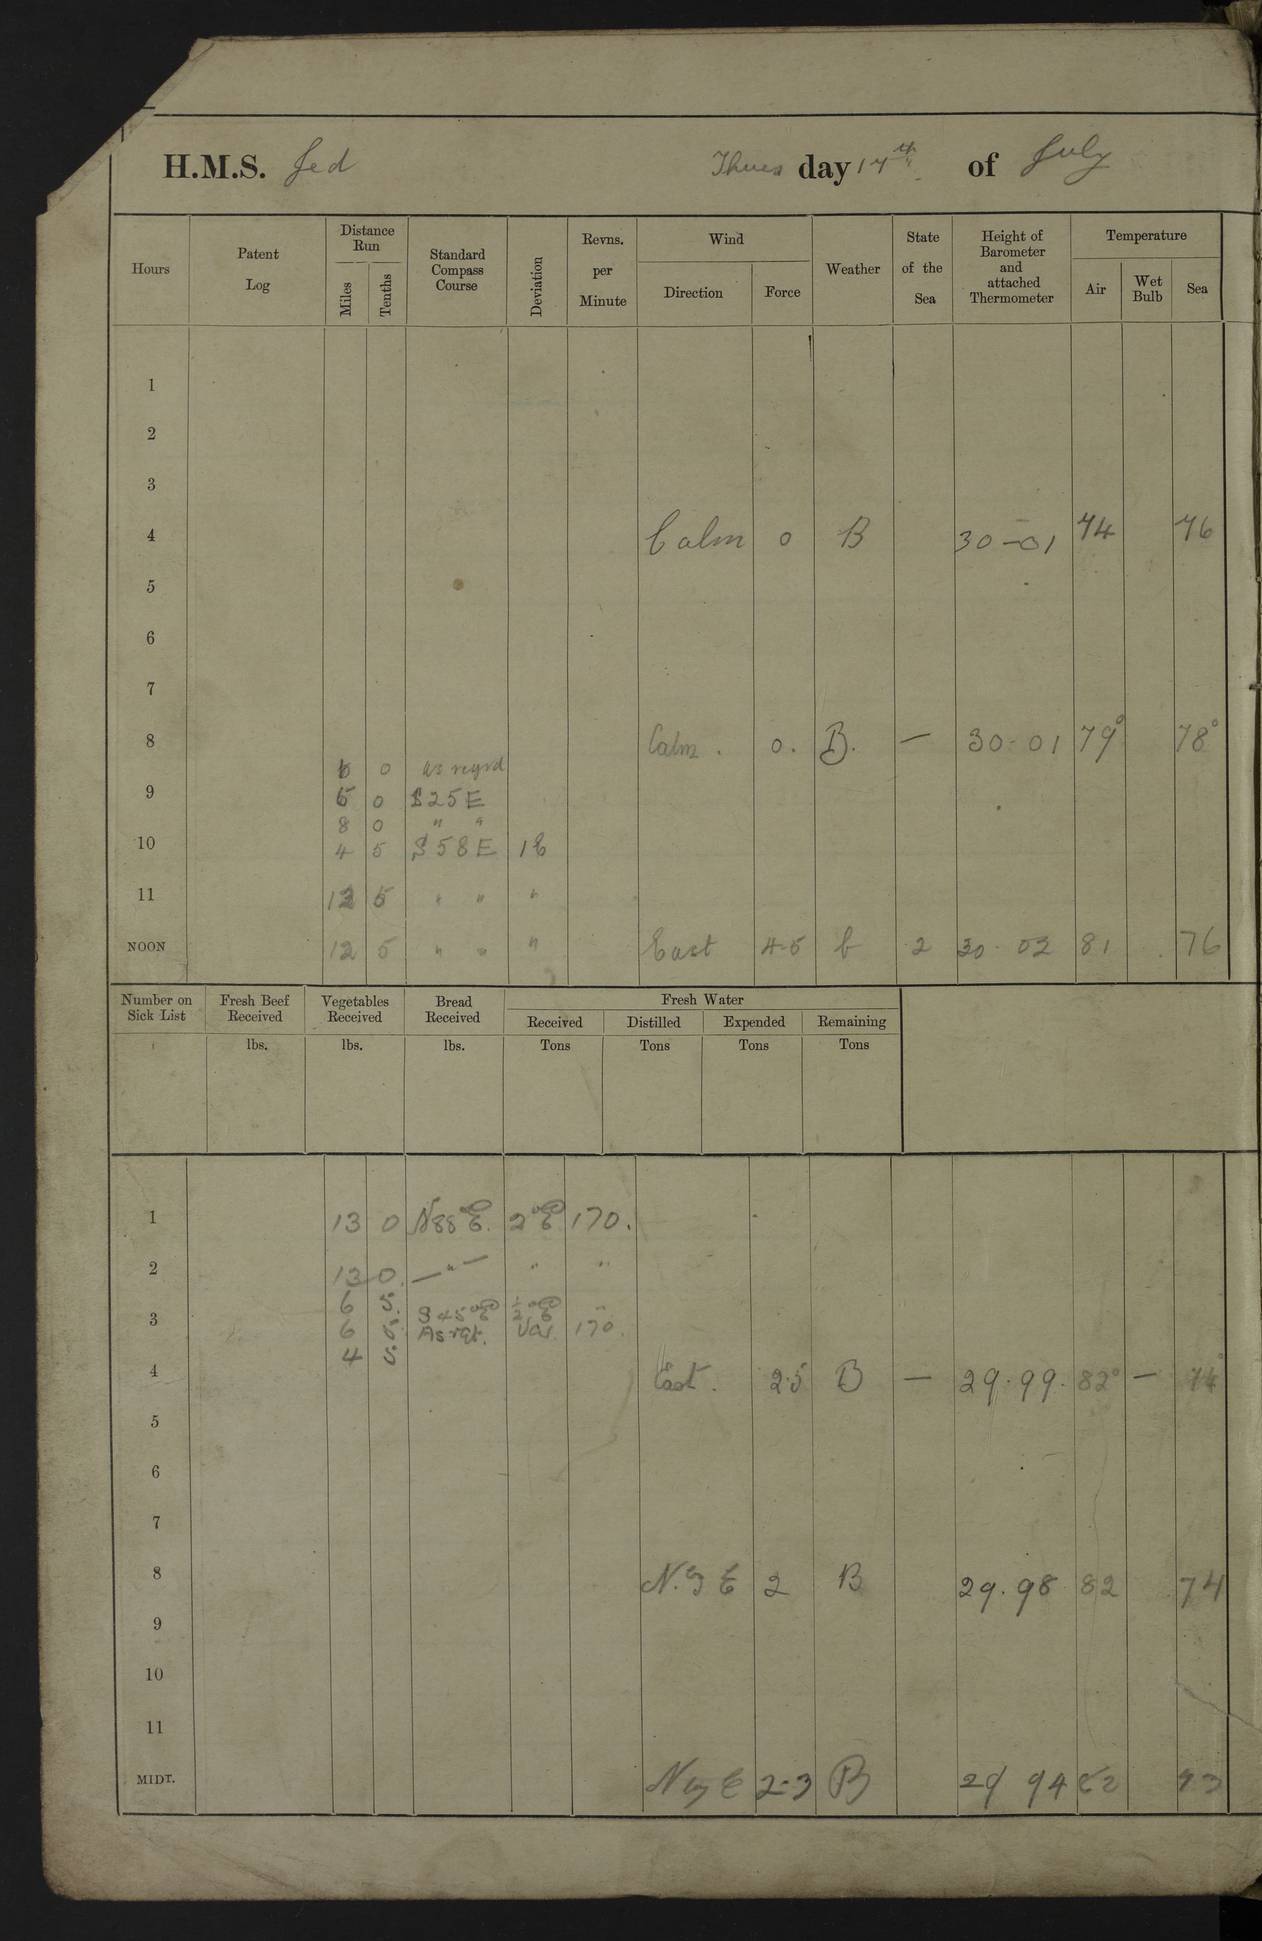 H.M.S. Jed Thurs day 17th of July
Hours
Patent Log
Distance Run
Miles
Tenths
Standard Compass Course
Deviation
Revns. per Minute
Wind
Direction
Force
Weather
State of the Sea
Height of Barometer and attached Thermometer
Temperature
Air
Wet Bulb
Sea
1
2
3
4 Calm 0 B 30-01 74 76
5
6
7
8 Calm. 0. B. — 30-01 79° 78°
0 as reqrd
9 5 0 S25E
8 0 " "
10 4 5 S58E 1E
11 12 5 " " "
NOON 12 5 " " " East 4-5 b 2 30. 02 81 76
Number on Sick List
Fresh Beef Received
Vegetables Received
Bread Received
Fresh Water
Received
Distilled
Expended
Remaining
lbs.
lbs.
lbs.
Tons
Tons
Tons
Tons
1 13 0 N88°E. 2°E 170.
2 13 0. —"— " "
6 5. S45°E ½°E "
3 6 5. As rqt. Var. 170.
4 5.
4 East. 2.5 B — 29.99. 82° — 74°
5
6
7
8 N.by E 2 B 29.98 82 74
9
10
11
MIDT. N by E 2-3 B 29 94 82 73